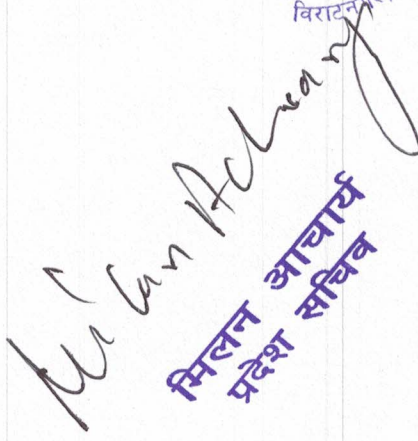 Milan Acharya
मिलन आचार्य
प्रदेश सचिव